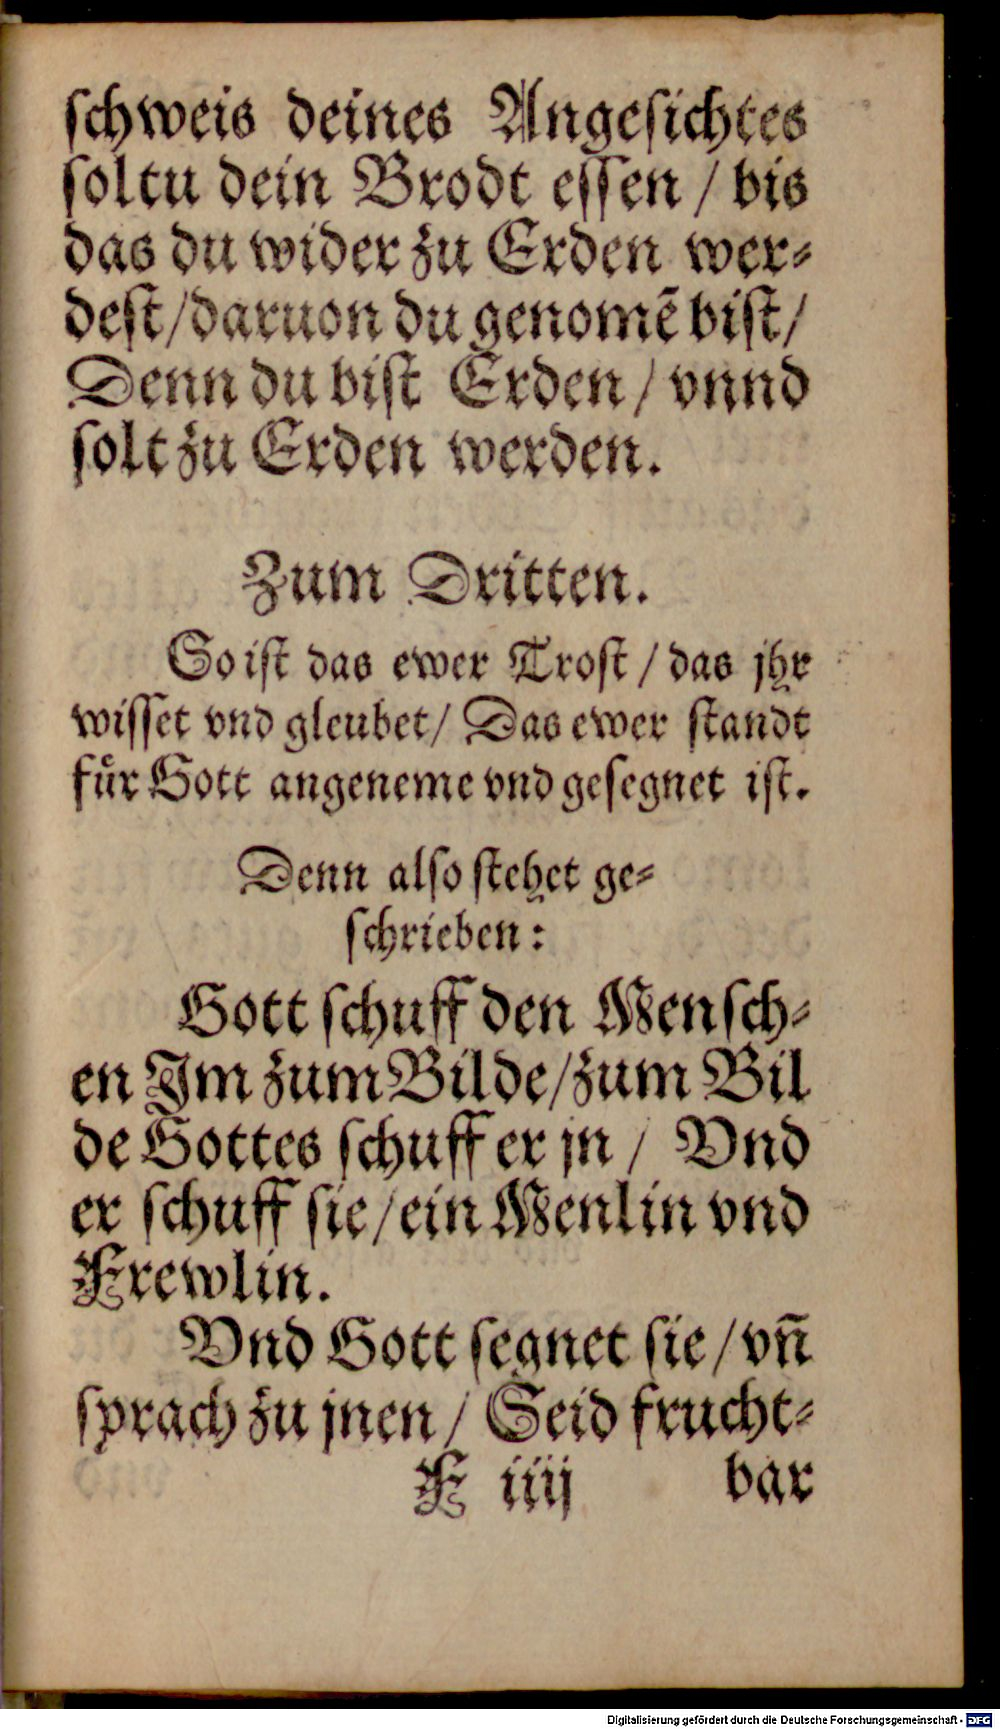 ſchweis deines Angeſichtes
ſoltu dein Brodt eſſen / bis
das du wider zu Erden wer⸗
deſt / daruon du genomē biſt /
Denn du biſt Erden / vnnd
ſolt zu Erden werden.
Zum Dritten.
So iſt das ewer Troſt / das jhr
wiſſet vnd gleubet / Das ewer ſtandt
fuͤr Gott angeneme vnd geſegnet iſt.
Denn alſo ſtehet ge⸗
ſchrieben:
Gott ſchuff den Menſch⸗
en Im zum Bilde / zum Bil
de Gottes ſchuff er jn / Vnd
er ſchuff ſie / ein Menlin vnd
Frewlin.
Vnd Gott ſegnet ſie / vn̄
ſprach zu jnen / Seid frucht⸗
F iiij bar
Digitalisierung gefördert durch die Deutsche Forschungsgemeinschaft - DFG